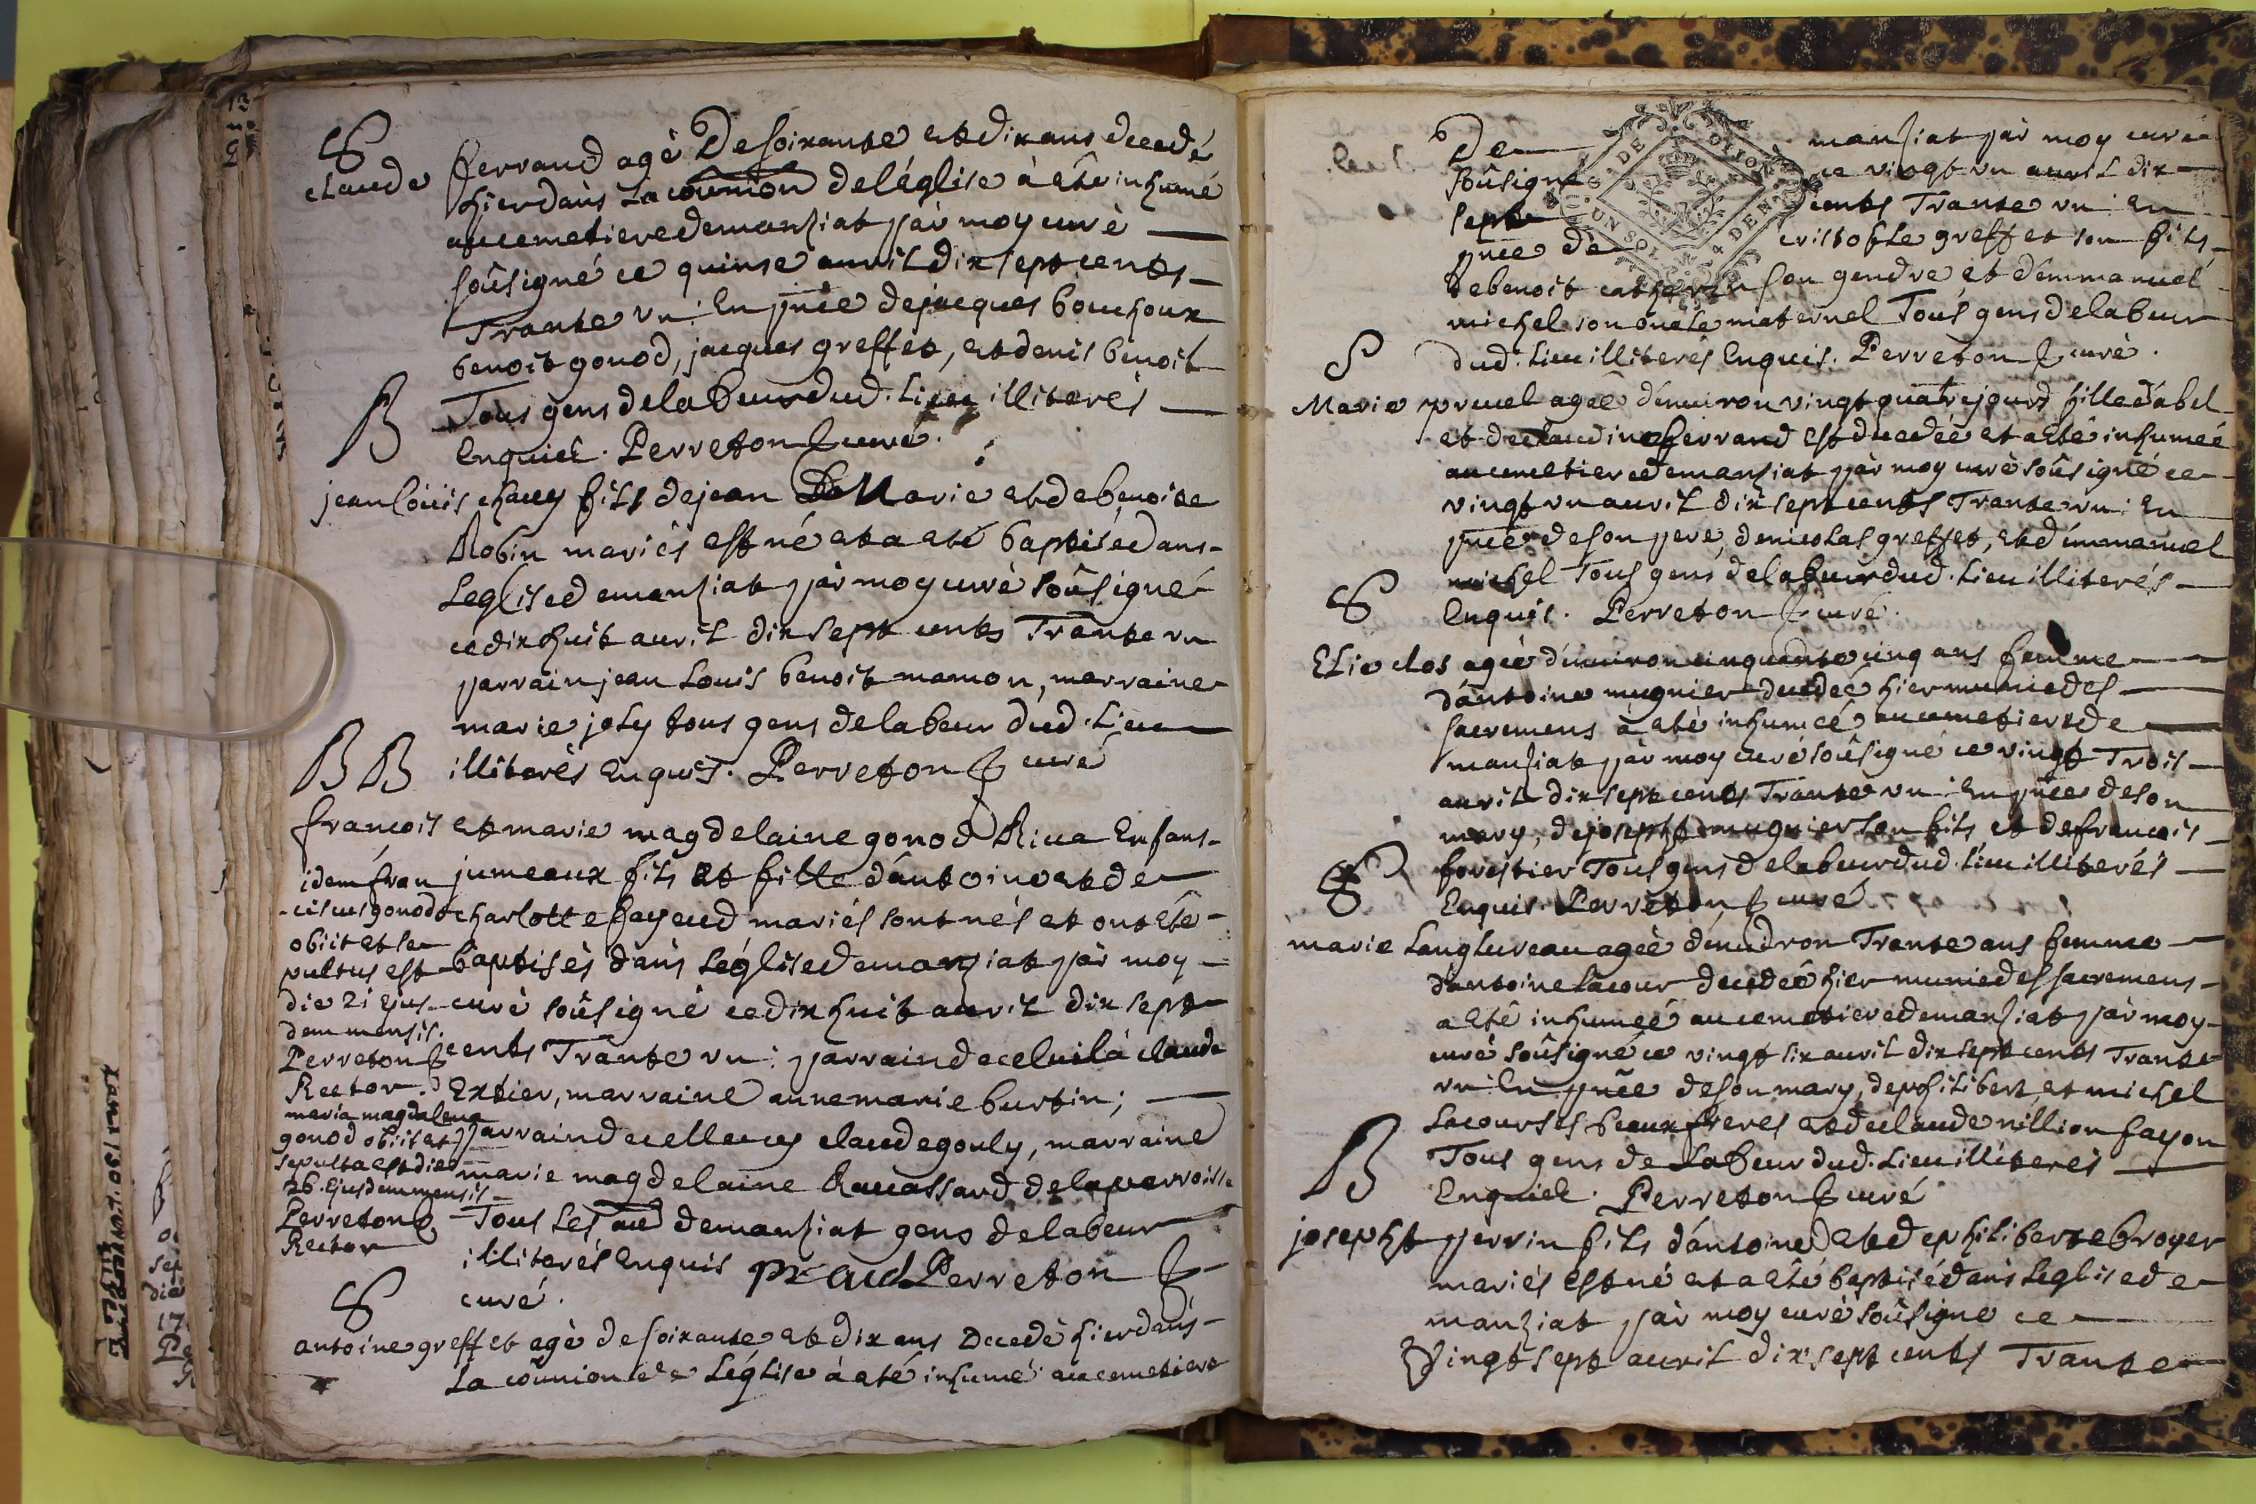 S
Claude ferrand agè De soixante et dix ans decedé
hier dans La coumion de l'église à eté inhumé
au cemetiere de manziat pàr moy curé
soûsigné ce quinse avril dix sept cents
Trante vn : En pnce de jacques bouchoux
benoit gonod, jacques greffet, et denis benoit
Tous gens de labeur dud. Lieu illiterés
Enquiê. Perreton curé.
B
jean loüis chacy fils de jean De Marie et de benoite
Robin mariés est né et a eté baptisé dans
Leglise de manziat pàr moy curé soûsigné
ce dix huit avril dix sept cents Trante vn
parrain jean Louis benoit mamon, marraine
marie joly tous gens de labeur dud. Lieu
illiterés Enquis. Perreton curé
B B
francois et marie magdelaine gonod Enfans
jumeaux fils et fille d'antoine et de
charlotte fayeud mariés sont nés et ont eté
baptisés dans Léglise de manziat pàr moy
curé soûsigné ce dix huit avril dix sept
cents Trante vn : parrain de celuila claude
Extier, marraine anne marie burtin ;
parrain de celle cy claude gouly, marraine
marie magdelaine Rauassard de la parroisse
Tous Les de manziat gens de labeur
illiterés Enquis Perreton
curé.
idem fran
ciscus gonod
obiit et se
pultus est
die 21 ejus
dem mensis.
Perreton
Rector.
maria magdalena
gonod obiit et
sepulta est die
26. ejusdem mensis
Perreton
Rector
S
antoine greffet agè de soixante et dix ans Decedé hier dans
La coumion de Léglise à eté inhumé au cemetiere
De manziat pàr moy curé
soûsigné ce vingt vn avril dix
sept cents Trante vn : En
pnce de cristofle greffet son fils
de benoit catherin son gendre et d'emmanuel
michel son oncle maternel Tous gens de labeur
dud. Lieu illiterés Enquis. Perreton curé.
S
Marie pruel agée d'enuiron vingt quatre jours fille d'abel
et de claudine ferrand est decedée et a eté inhumée
au cemetiere de manziat pàr moy curé soûsigné ce
vingt vn avril dix sept cents Trante vn : En
pnce de son pere, de nicolas greffet, et d'emmanuel
michel Tous gens de labeur dud. Lieu illiterés
Enquis. Perreton curé.
S
Elie clos agée d'enuiron cinquante cinq ans femme
d'antoine mugnier decedée hier munie des
sacremens à eté inhumée au cemetiere de
manziat pàr moy curé soûsigné ce vingt Trois
avril dix sept cents Trante vn : En pnce de son
mary, de josepht mugnier son fils et de francois
forestier Tous gens de labeur dud. Lieu illiterés
Enquis. Perreton curé
S
marie Langlureau agée d'enuiron Trante ans femme
d'antoine Lacour decedée hier munie des sacremens
a eté inhumée au cemetiere de manziat pàr moy
curé soûsigné ce vingt six avril dix sept cents Trante
vn : En pnce de son mary, de philibert, et michel
Lacour ses beaux freres et de claude million fayon
Tous gens de Labeur dud. Lieu illiterés
Enquiê. Perreton curé
B
josepht perrin fils d'antoine et de philiberte broyer
mariés est né et a eté baptisé dans Leglise de
manziat pàr moy curé soûsigné ce
Vingt sept avril dix sept cents Trante
DE DIION
UN SOL
4 DEN